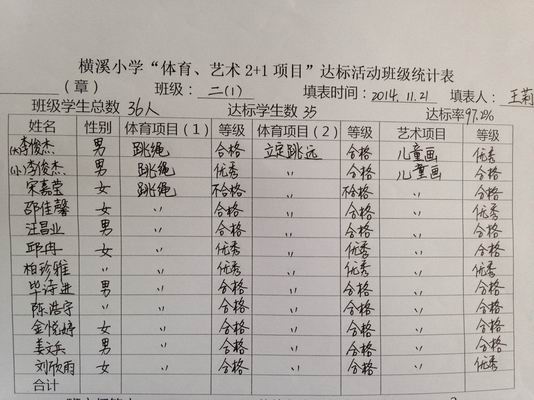 横溪小学“体育、艺术2+1项目”达标活动班级统计表
（章） 班级：二(1) 填表时间：2014.11.21 填表人：王莉
班级学生总数 36人 达标学生数 35 达标率97.2%
姓名 性别 体育项目（1） 等级 体育项目（2） 等级 艺术项目 等级
(大)李俊杰 男 跳绳 合格 立定跳远 合格 儿童画 优秀
(小)李俊杰 男 跳绳 优秀 〃 合格 儿童画 合格
宋嘉莹 女 跳绳 不合格 〃 不合格 〃 合格
邵佳馨 女 〃 合格 〃 合格 〃 优秀
汪昌业 男 〃 合格 〃 合格 〃 合格
邱冉 女 〃 优秀 〃 优秀 〃 合格
柏珍雅 〃 〃 优秀 〃 合格 〃 优秀
毕诗进 男 〃 合格 〃 合格 〃 合格
陈浩宇 〃 〃 合格 〃 合格 〃 合格
金悦婷 女 〃 合格 〃 合格 〃 合格
姜文兵 男 〃 合格 〃 合格 〃 合格
刘欣雨 女 〃 合格 〃 合格 〃 优秀
合计